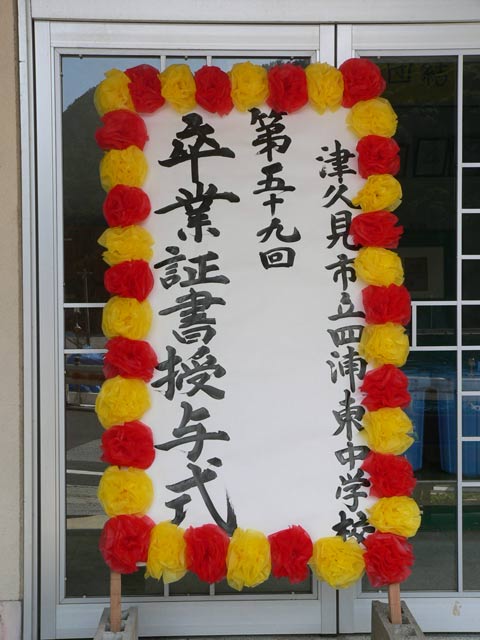 津久見市立四浦東中学校
第五十九回
卒業証書授与式
団結